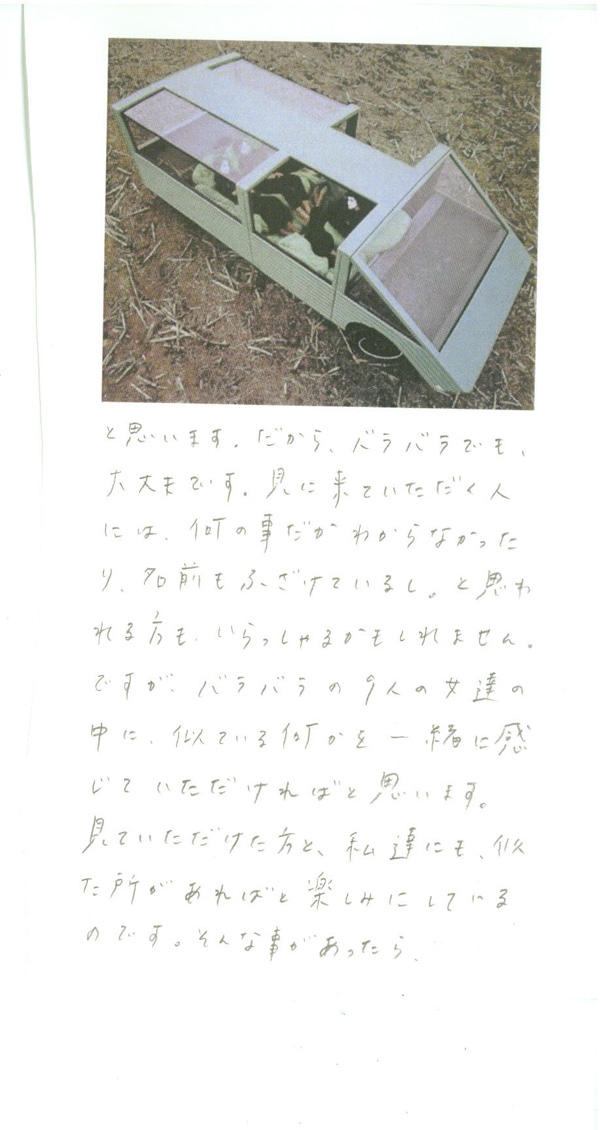 と思います。だから、バラバラでも、
大丈夫です。見に来ていただく人
には、何の事だかわからなかった
り、名前もふざけているし。と思わ
れる方も、いらっしゃるかもしれません。
ですが、バラバラの9人の女達の
中に、似ている何かを一緒に感
じていただければと思います。
見ていただけた方と、私達にも、似
た所があればと楽しみにしている
のです。そんな事があったら、